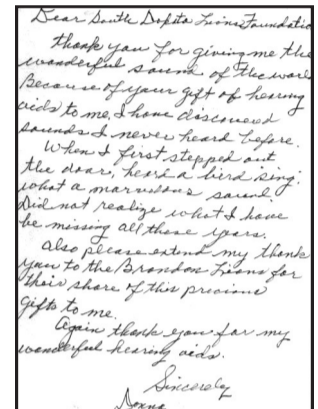 Dear South Dakota Lions Foundatio
Thank you for giving me the
wonderful sound of the worl
Because of your gift of hearing
aids to me, I have discovered
sounds I never heard before.
When I first stepped out
the door, heard a bird sing.
What a marvelous sound.
Did not realize what I have
be missing all these years.
Also please extend my thank
you to the Brandon Lions for
their share of this precious
gifts to me.
Again thank you for my
wonderful hearing aids.
Sincerely
Donna